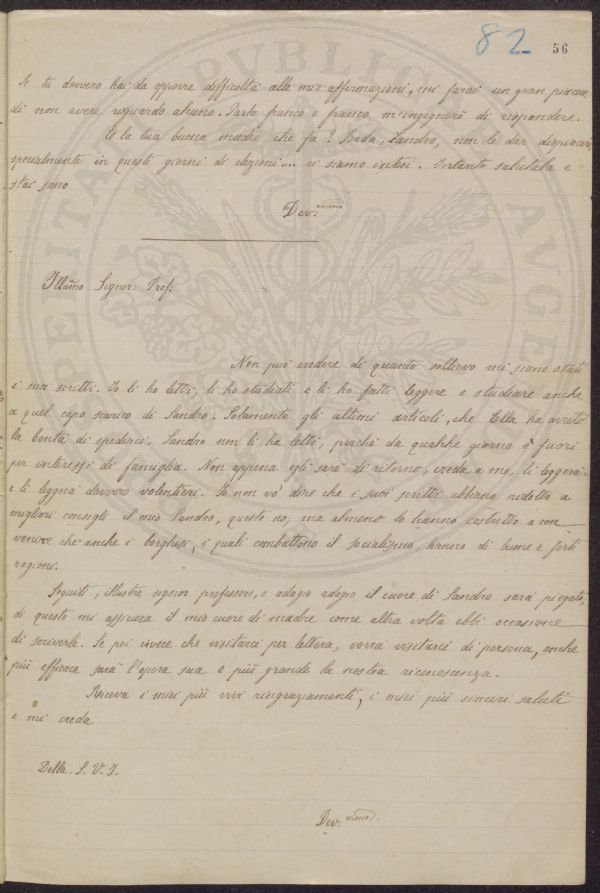 82 56
Se tu davvero hai da opporre difficoltà alle mie affermazioni, mi farai un gran piacere
di non avere riguardo alcuno. Parla franco e franco m'ingegnerò di rispondere.
E la tua buona madre che fa? Bada, Sandro, non le dar dispiaceri,
specialmente in questi giorni di elezioni.... ci siamo intesi. Intanto salutala e
stai sano
Dev:
Illmo Signor: Prof:
Non può credere di quanto sollievo mi siano stati
i suoi scritti. Io li ho letti, li ho studiati e li ho fatti leggere e studiare anche
a quel capo scarico di Sandro. Solamente gli ultimi articoli, che Ella ha avuto
la bontà di spedirci, Sandro non li ha letti, perchè da qualche giorno è fuori
per interessi di famiglia. Non appena egli sarà di ritorno, creda a me, li leggerà
e li leggerà davvero volentieri. Io non vo' dire che i suoi scritti abbiano ridotto a
migliori consigli il mio Sandro, questo no; ma almeno lo hanno costretto a con_
venire che anche i borghesi, i quali combattono il socialismo, hanno di buone e forti
ragioni.
Seguiti, illustre signor professore, e adagio adagio il cuore di Sandro sarà piegato;
di questo mi assicura il mio cuore di madre come altra volta ebbi occasione
di scriverle. Se poi invece che visitarci per lettera, vorrà visitarci di persona, anche
più efficace sarà l'opera sua e più grande la nostra riconoscenza.
Riceva i miei più vivi ringraziamenti, i miei più sinceri saluti
e mi creda
Della S. V. I.
Dev.